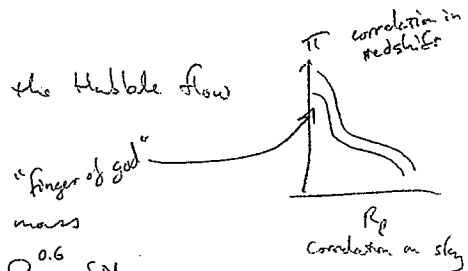 π correlation in
redshift
the Hubble flow
"finger of god"
mass
0.6
R_p
Correlation on sky